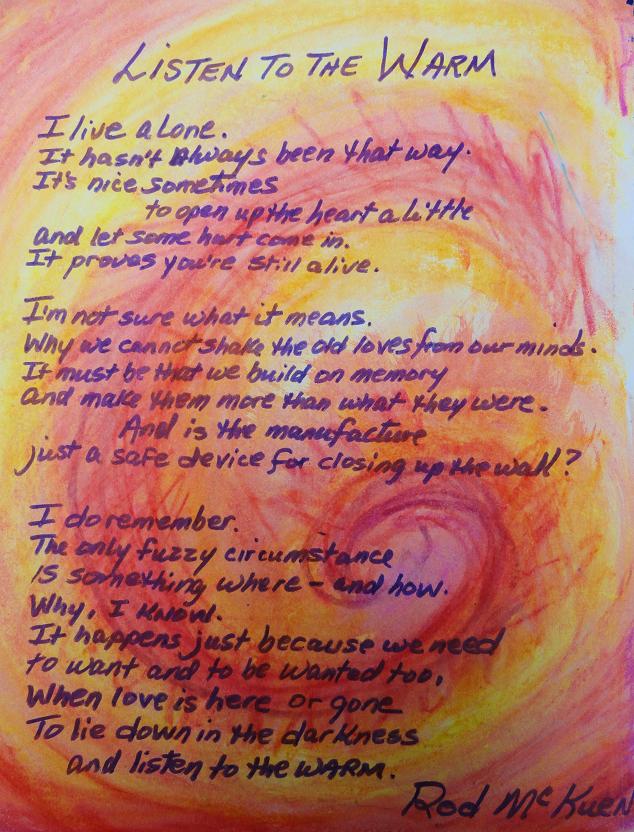 LISTEN TO THE WARM
I live alone.
It hasn't Always been that way.
It's nice sometimes
to open up the heart a little
and let some hurt come in.
It proves you're still alive.
I'm not sure what it means.
Why we cannot shake the old loves from our minds.
It must be that we build on memory
and make them more than what they were.
And is the manufacture
just a safe device for closing up the wall?
I do remember.
The only fuzzy circumstance
is something where - and how.
Why, I know.
It happens just because we need
to want and to be wanted too,
When love is here or gone
To lie down in the darkness
and listen to the WARM.
Rod McKuen